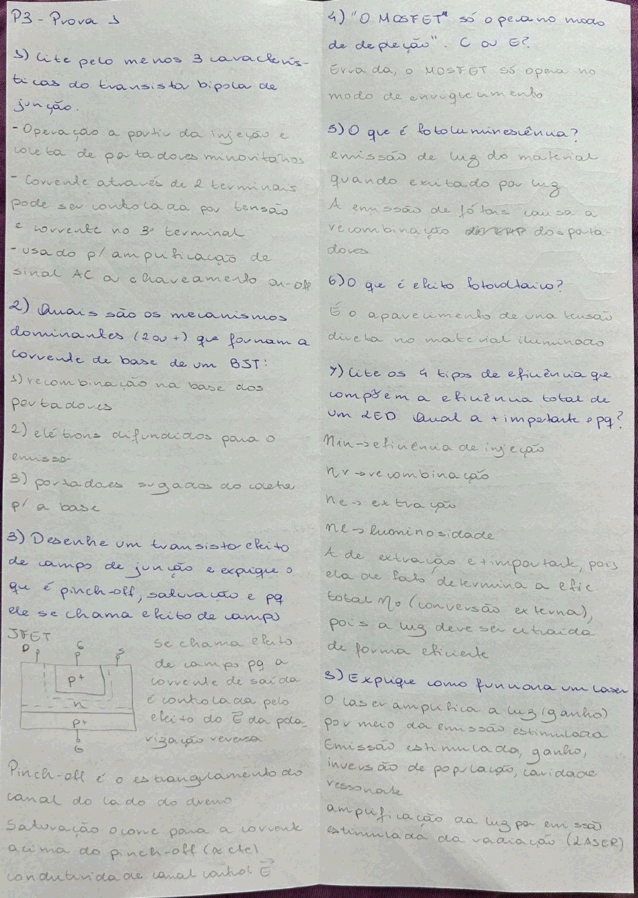 P3 - Prova 1
1) Cite pelo menos 3 caracterís-
ticas do transistor bipolar de
junção.
- Operação a partir da injeção e
coleta de portadores minoritários
- Corrente através de 2 terminais
pode ser controlada por tensão
e corrente no 3º terminal
- usado p/ amplificação de
sinal AC ou chaveamento on-off
2) Quais são os mecanismos
dominantes (2 ou +) que formam a
corrente de base de um BJT:
1) recombinação na base dos
portadores
2) elétrons difundidos para o
emissor
3) portadores sugados do coletor
p/ a base
3) Desenhe um transistor efeito
de campo de junção e explique o
que é pinch-off, saturação e pq
ele se chama efeito de campo
JFET
D
G
S
p+
n
p+
G
Se chama efeito
de campo pq a
corrente de saída
é controlada pelo
efeito do E da pola
rização reversa
Pinch-off é o estrangulamento do
canal do lado do dreno
Saturação ocorre para a corrente
acima do pinch-off (≈ cte)
condutividade canal control E
4) "O MOSFET" só opera no modo
de depleção". C ou E?
Errada, o MOSFET só opera no
modo de enriquecimento
5) O que é fotoluminescência?
emissão de luz do material
quando excitado por luz
A emissão de fótons causa a
recombinação dos porta-
dores
6) O que é efeito fotovoltaico?
É o aparecimento de uma tensão
direta no material iluminado
7) Cite os 4 tipos de eficiência que
compõem a eficiência total de
um LED. Qual a + importante e pq?
ηin → eficiência de injeção
ηr → recombinação
ηe → extração
ηe → luminosidade
A de extração é + importante, pois
ela de fato determina a efic
total ηo (conversão externa),
pois a luz deve ser extraída
de forma eficiente
8) Explique como funciona um laser
O laser amplifica a luz (ganho)
por meio da emissão estimulada
Emissão estimulada, ganho,
inversão de população, cavidade
ressonante
amplificação da luz por emissão
estimulada da radiação (LASER)